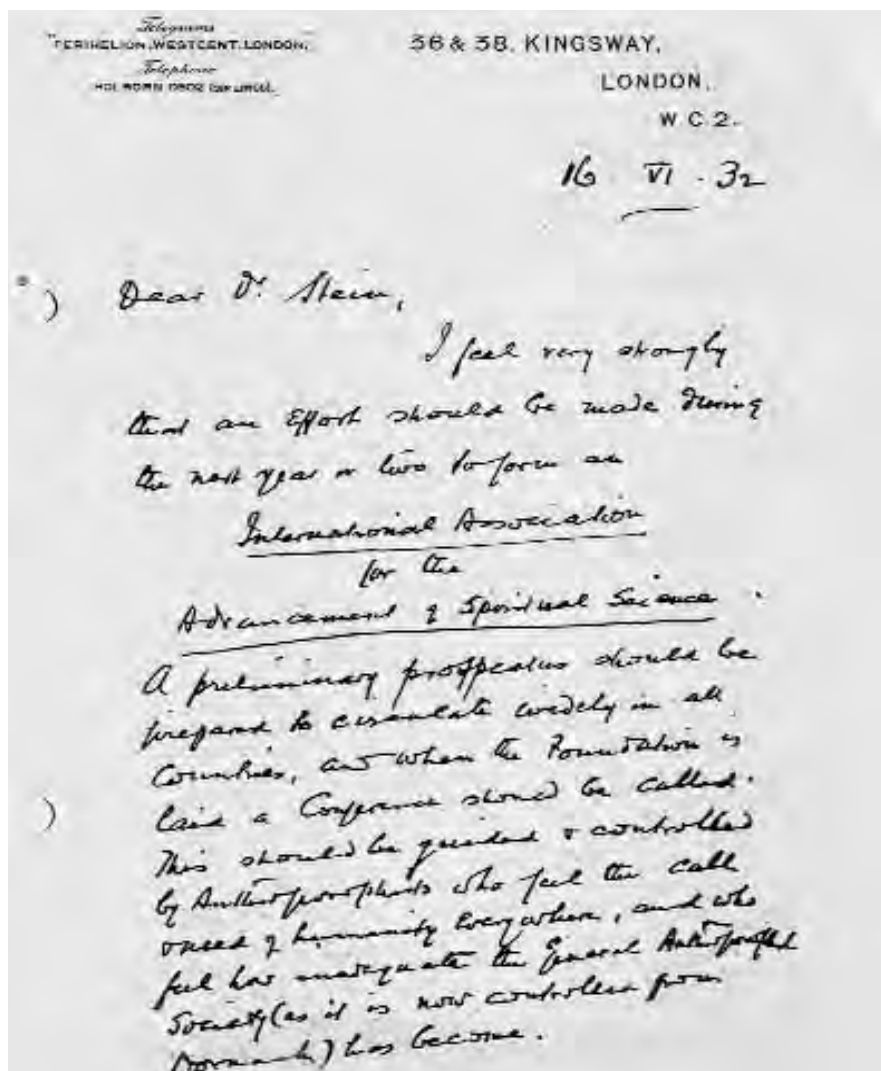 Telegrams
"PERIHELION, WESTCENT, LONDON."
Telephone
HOLBORN 0802
36 & 38, KINGSWAY,
LONDON,
W C.2.
16 VI . 32
Dear Dr. Stein,
I feel very strongly
that an Effort should be made during
the next year or two to form an
International Association
for the
Advancement of Spiritual Science.
A preliminary prospectus should be
prepared to circulate widely in all
Countries, and when the Foundation is
laid a Conference should be called.
This should be guided & controlled
by Anthroposophists who feel the call
& need of humanity Everywhere, and who
feel how inadequate the General Anthroposophical
Society (as it is now controlled from
Dornach) has become.